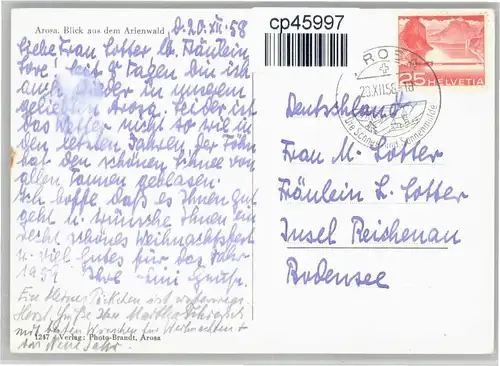 Arosa. Blick aus dem Arlenwald
d. 20. XII. 58
cp45997
Liebe Frau Lotter lb. Fräulein
Lore! Seit 8 Tagen bin ich
auch wieder in unserem
geliebten Arosa. Leider ist
das Wetter nicht so wie in
den letzten Jahren, der Föhn
hat den schönen Schnee von
allen Tannen geblasen.
Ich hoffe daß es Ihnen gut
geht u. wünsche Ihnen ein
recht schönes Weihnachtsfest
u. viel Gutes für das Jahr
1959 Ihre
Ein kleines Päckchen ist unterwegs.
Herzl. Grüße Ihre Martha
mit besten Wünschen für Weihnachten u.
das Neue Jahr.
1247 Verlag: Photo-Brandt, Arosa
AROSA
20.XII.58
Die Schnee- und Sonnenseite
25 HELVETIA
Deutschland
Frau M. Lotter
Fräulein L. Lotter
Insel Reichenau
Bodensee